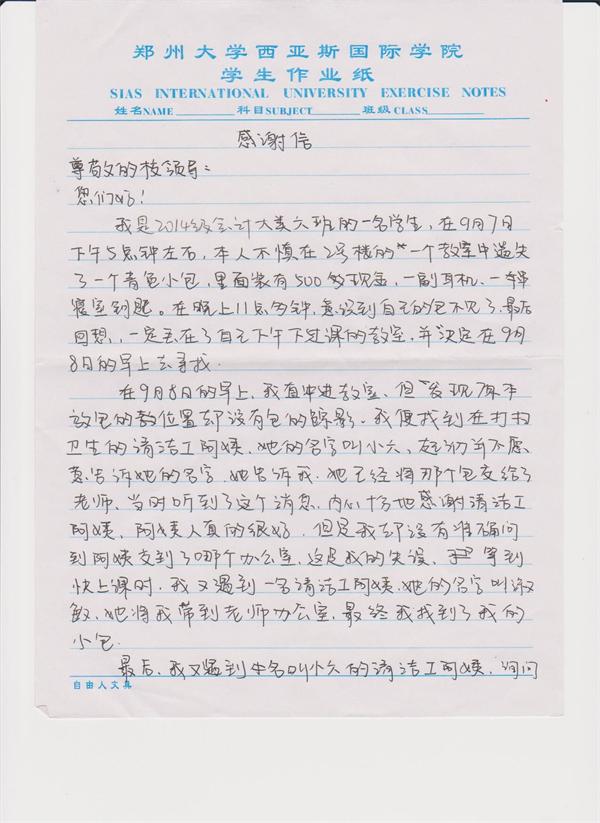 郑州大学西亚斯国际学院
学生作业纸
SIAS INTERNATIONAL UNIVERSITY EXERCISE NOTES
姓名NAME 科目SUBJECT 班级CLASS
感谢信
尊敬的校领导：
您们好！
我是2014级会计大类六班的一名学生，在9月7日
下午5点钟左右，本人不慎在2号楼的一个教室中遗失
了一个青色小包，里面装有500多现金，一副耳机，一串
寝室钥匙。在晚上11点多钟，意识到自己的包不见了，最后
回想，一定丢在了自己下午下过课的教室，并决定在9月
8日的早上去寻找。
在9月8日的早上，我直冲进教室，但发现原本
放包的位置却没有包的踪影。我便找到在打扫
卫生的清洁工阿姨，她的名字叫小六，起初并不愿
意告诉她的名字，她告诉我，她已经将那个包交给了
老师，当时听到了这个消息，内心十分地感谢清洁工
阿姨，阿姨人真的很好，但是我却没有准确问
到阿姨交到了哪个办公室，这是我的失误，等到
快上课时，我又遇到一名清洁工阿姨，她的名字叫淑
敏，她将我带到老师办公室，最终我找到了我的
小包。
最后，我又遇到名叫小六的清洁工阿姨，询问
自由人文具